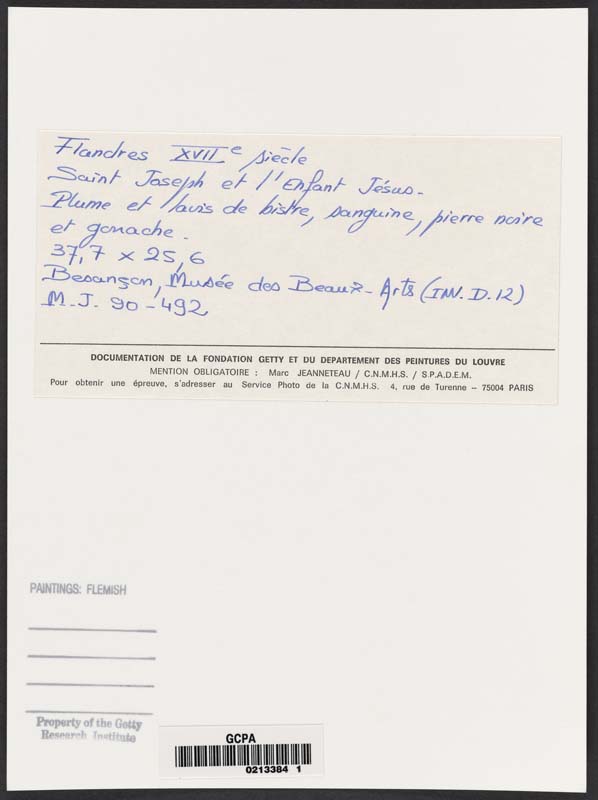 Flandres XVIIe siècle
Saint Joseph et l'Enfant Jésus.
Plume et lavis de bistre, sanguine, pierre noire
et gouache.
37,7 x 25,6
Besançon, Musée des Beaux-Arts (INV. D. 12)
M.J. 90-492
DOCUMENTATION DE LA FONDATION GETTY ET DU DEPARTEMENT DES PEINTURES DU LOUVRE
MENTION OBLIGATOIRE : Marc JEANNETEAU / C.N.M.H.S. / S.P.A.D.E.M.
Pour obtenir une épreuve, s'adresser au Service Photo de la C.N.M.H.S. 4, rue de Turenne – 75004 PARIS
PAINTINGS: FLEMISH
Property of the Getty
Research Institute
GCPA
0213384 1